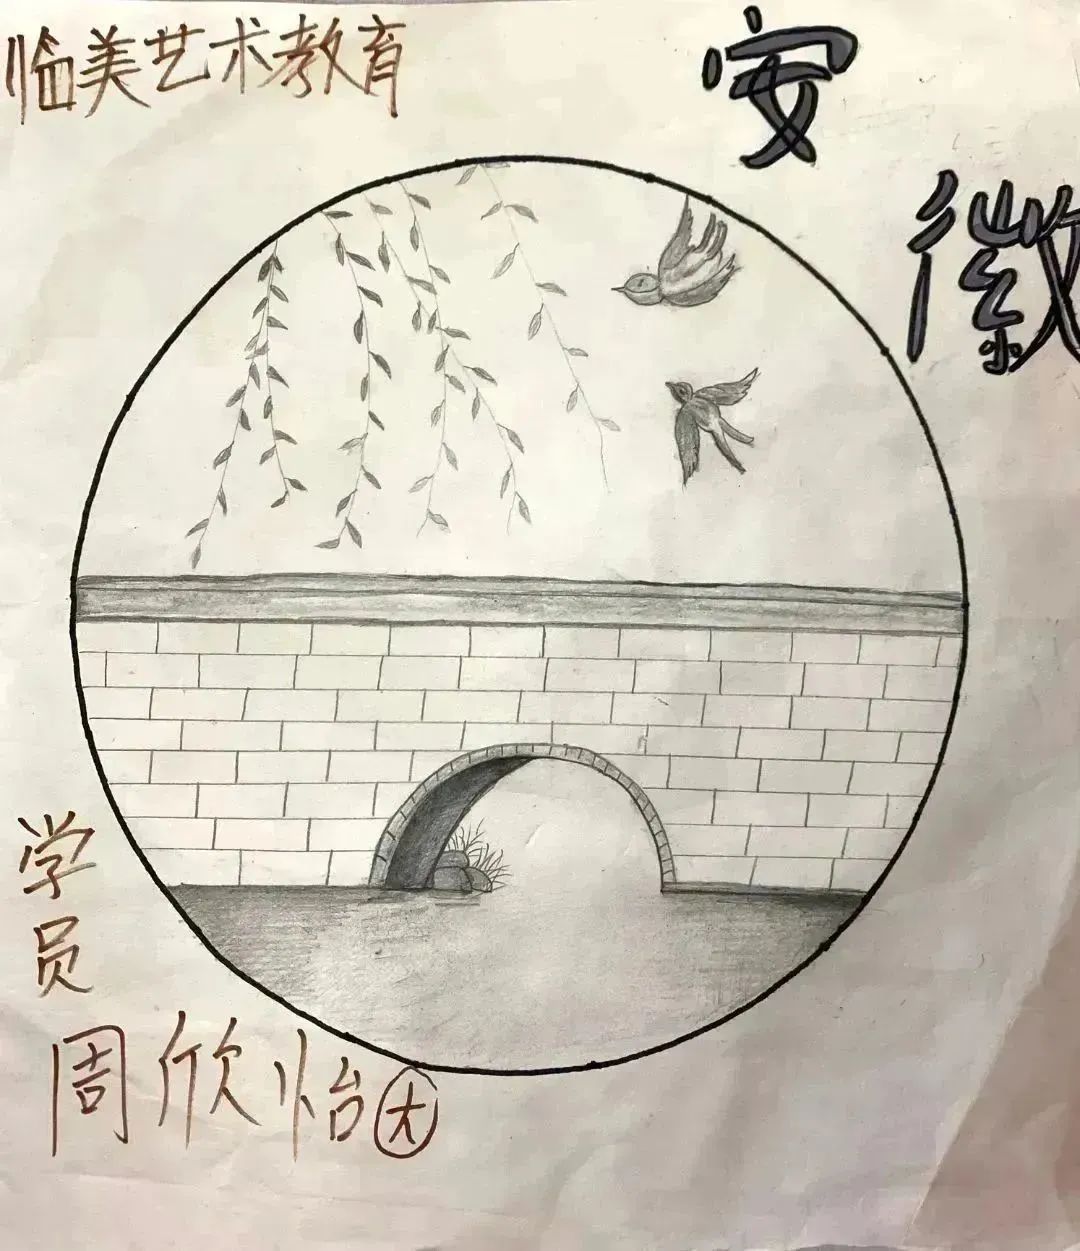 临美艺术教育
安徽
学员
周欣怡大